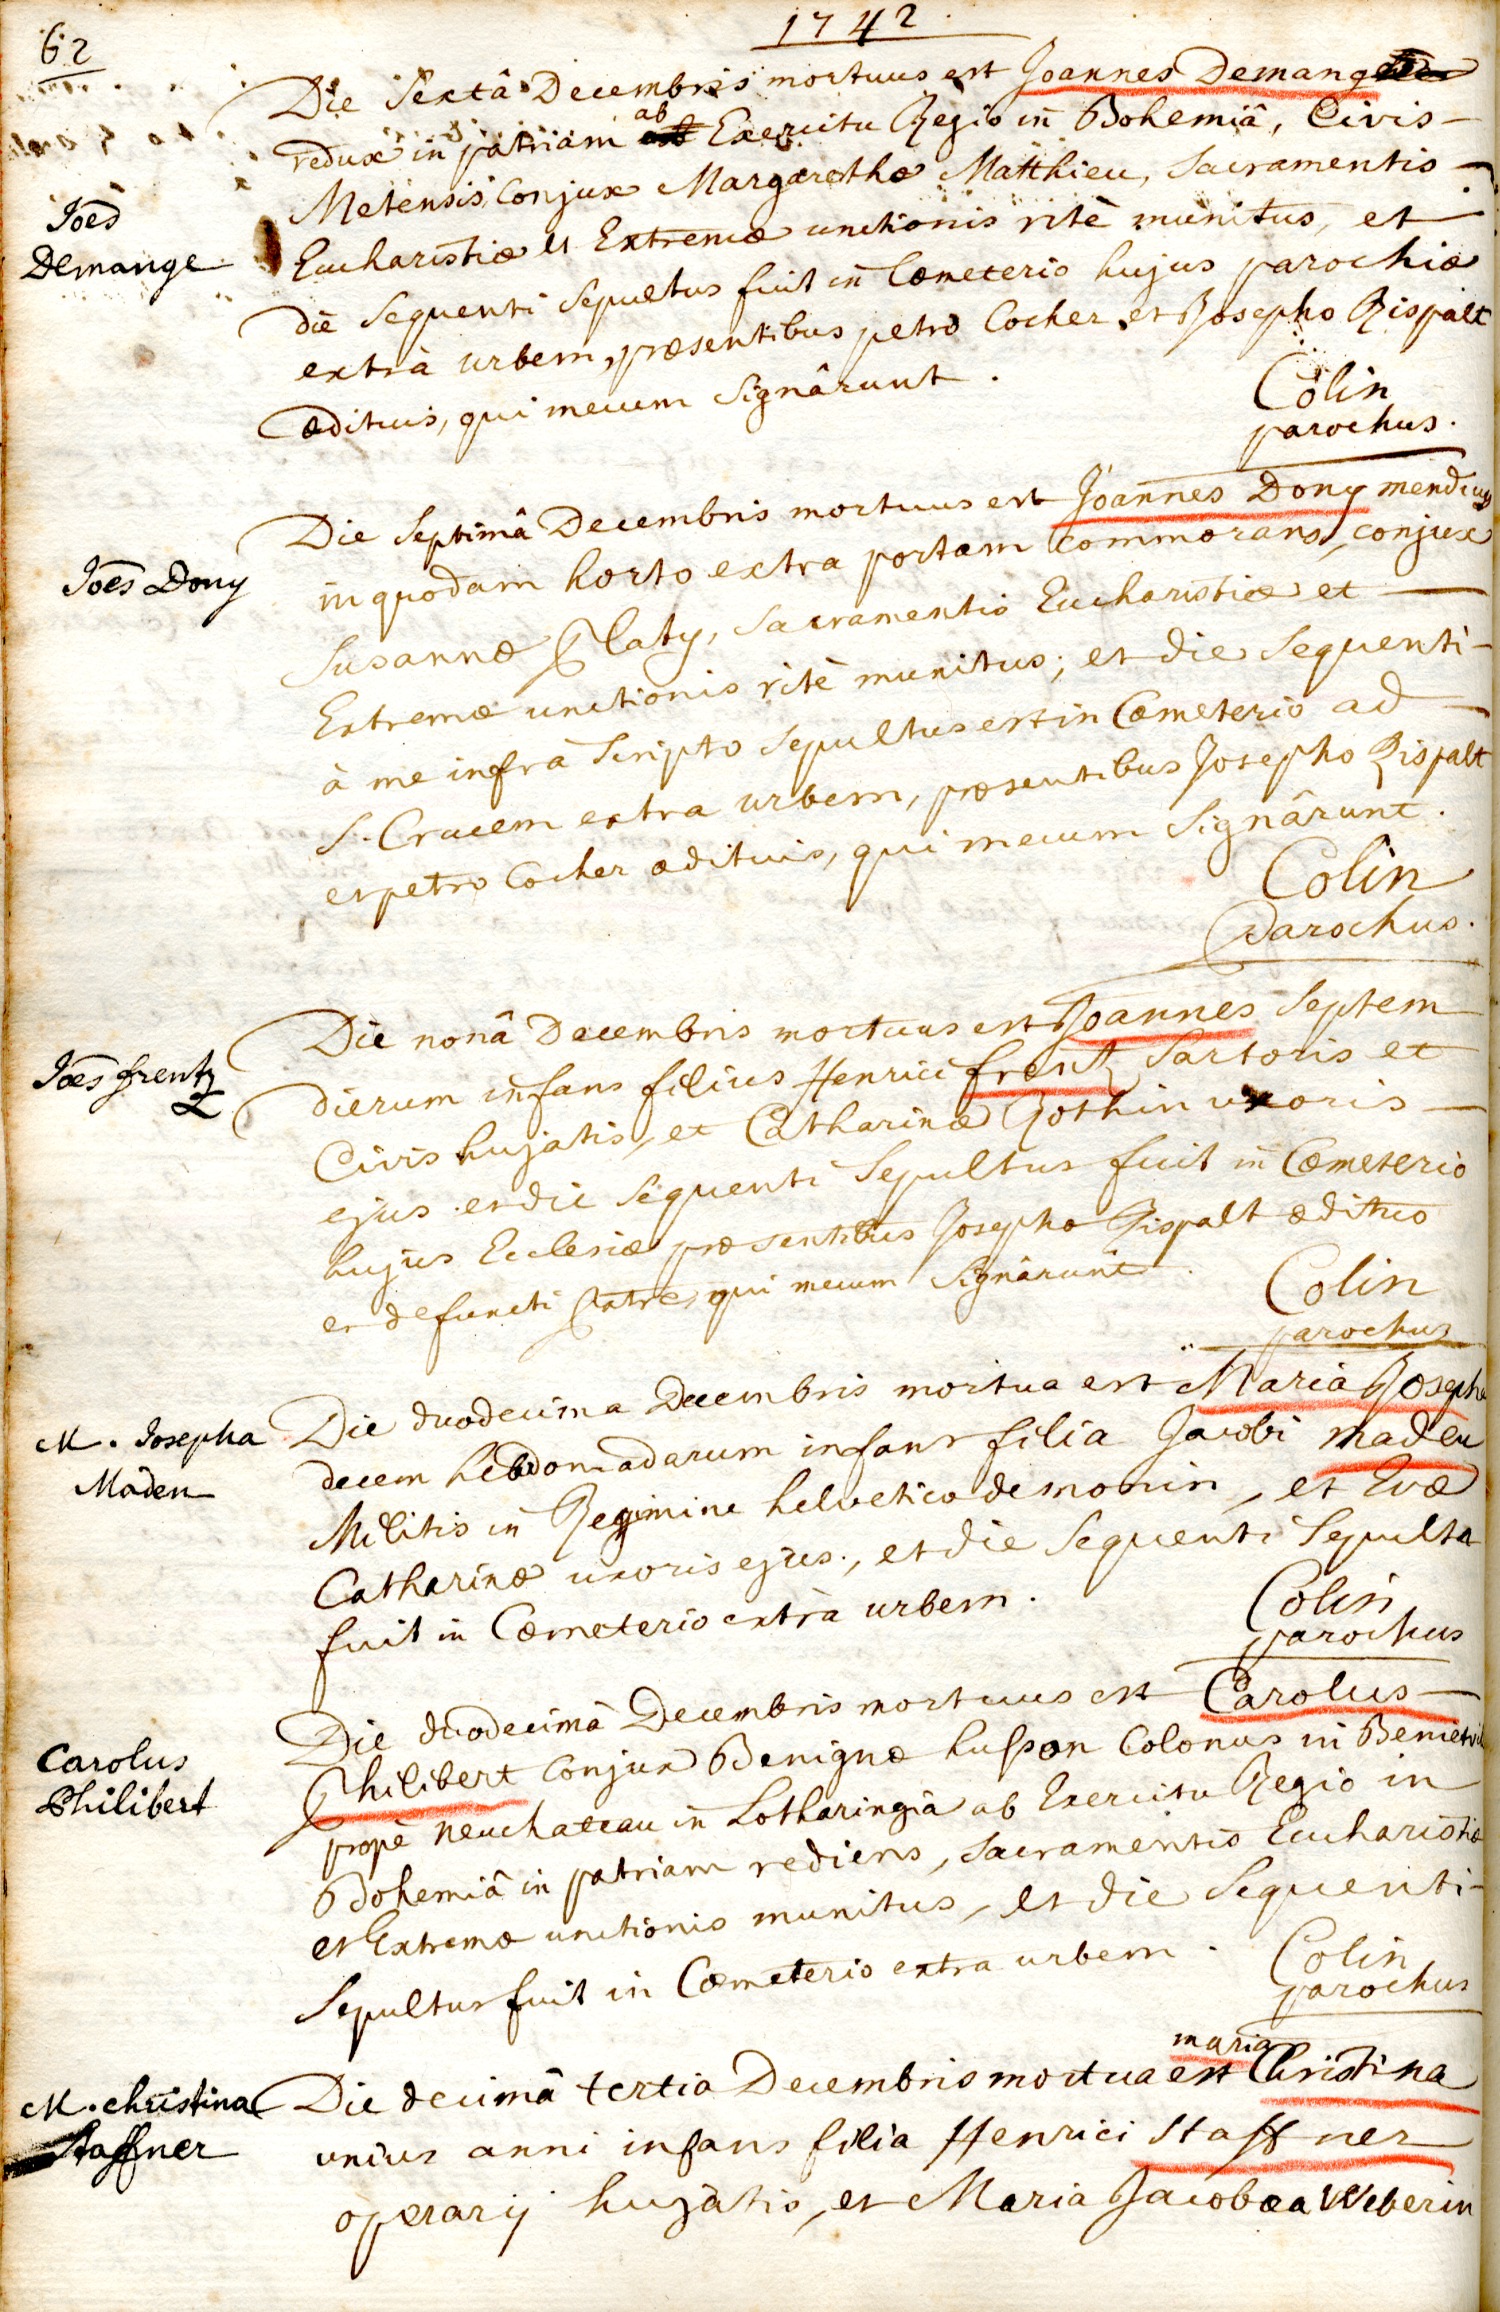 62
1742.
Die Sextâ Decembris mortuus est Joannes Demange
redux in patriam ab Exercitu Regio in Bohemiâ, Civis
Metensis Conjux Margarethæ Matthieu, Sacramentis
Joes
Demange
Eucharistiæ et Extremæ unctionis ritè munitus, et
die sequenti sepultus fuit in Cœmeterio hujus parochiæ
extrà urbem, præsentibus petro Cocher et Josepho Rispalt
ædituis, qui mecum signârunt.
Colin
parochus.
Die Septimâ Decembris mortuus est Joannes Dony mendicus
Joes Dony
in quodam horto extra portam commorans, conjux
Susannæ Platy, Sacramentis Eucharistiæ et
Extremæ unctionis ritè munitus; et die sequenti
à me infrà scripto sepultus est in Cœmeterio ad
S. Crucem extra urbem, præsentibus Josepho Rispalt
et petro Cocher ædituis, qui mecum signârunt.
Colin
Parochus.
Die nonâ Decembris mortuus est Joannes Septem
Joes frentz
dierum infans filius Henrici frentz Sartoris et
Civis hujatis, et Catharinæ Gothin uxoris
ejus. et die sequenti sepultus fuit in Cœmeterio
hujus Ecclesiæ præsentibus Josepho Rispalt ædituo
et defuncti Patre, qui mecum signârunt.
Colin
parochus
Die duodecima Decembris mortua est Maria Josepha
M. Josepha
Maden
decem hebdomadarum infans filia Jacobi maden
Militis in Regimine helvetico de monin, et Evæ
Catharinæ uxoris ejus., et die sequenti sepulta
fuit in Cœmeterio extrà urbem.
Colin
parochus
Die duodecimâ Decembris mortuus est Carolus
Carolus
Philibert
Philibert conjux Benignæ husson Colonus in
propè neuchateau in Lotharingiâ ab Exercitu Regio in
Bohemiâ in patriam rediens, Sacramentis Eucharistiæ
et Extremæ unctionis munitus, et die sequenti
sepultus fuit in Cœmeterio extra urbem.
Colin
parochus
maria
Die decimâ tertia Decembris mortua est Christina
M. christina
Staffner
unius anni infans filia Henrici Staffner
operarij hujatis, et Maria Jacobæa Weberin